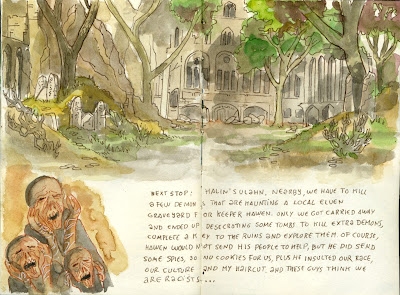 NEXT STOP: HALIN'SULAHN, NEARBY, WE HAVE TO KILL
A FEW DEMONS THAT ARE HAUNTING A LOCAL ELVEN
GRAVEYARD FOR KEEPER HAWEN. ONLY WE GOT CARRIED AWAY
AND ENDED UP DESECRATING SOME TOMBS TO KILL EXTRA DEMONS,
COMPLETE A KEY TO THE RUINS AND EXPLORE THEM. OF COURSE,
HAWEN WOULD NOT SEND HIS PEOPLE TO HELP, BUT HE DID SEND
SOME SPIES, SO NO COOKIES FOR US, PLUS HE INSULTED OUR RACE,
OUR CULTURE AND MY HAIRCUT, AND THESE GUYS THINK WE
ARE RACISTS....